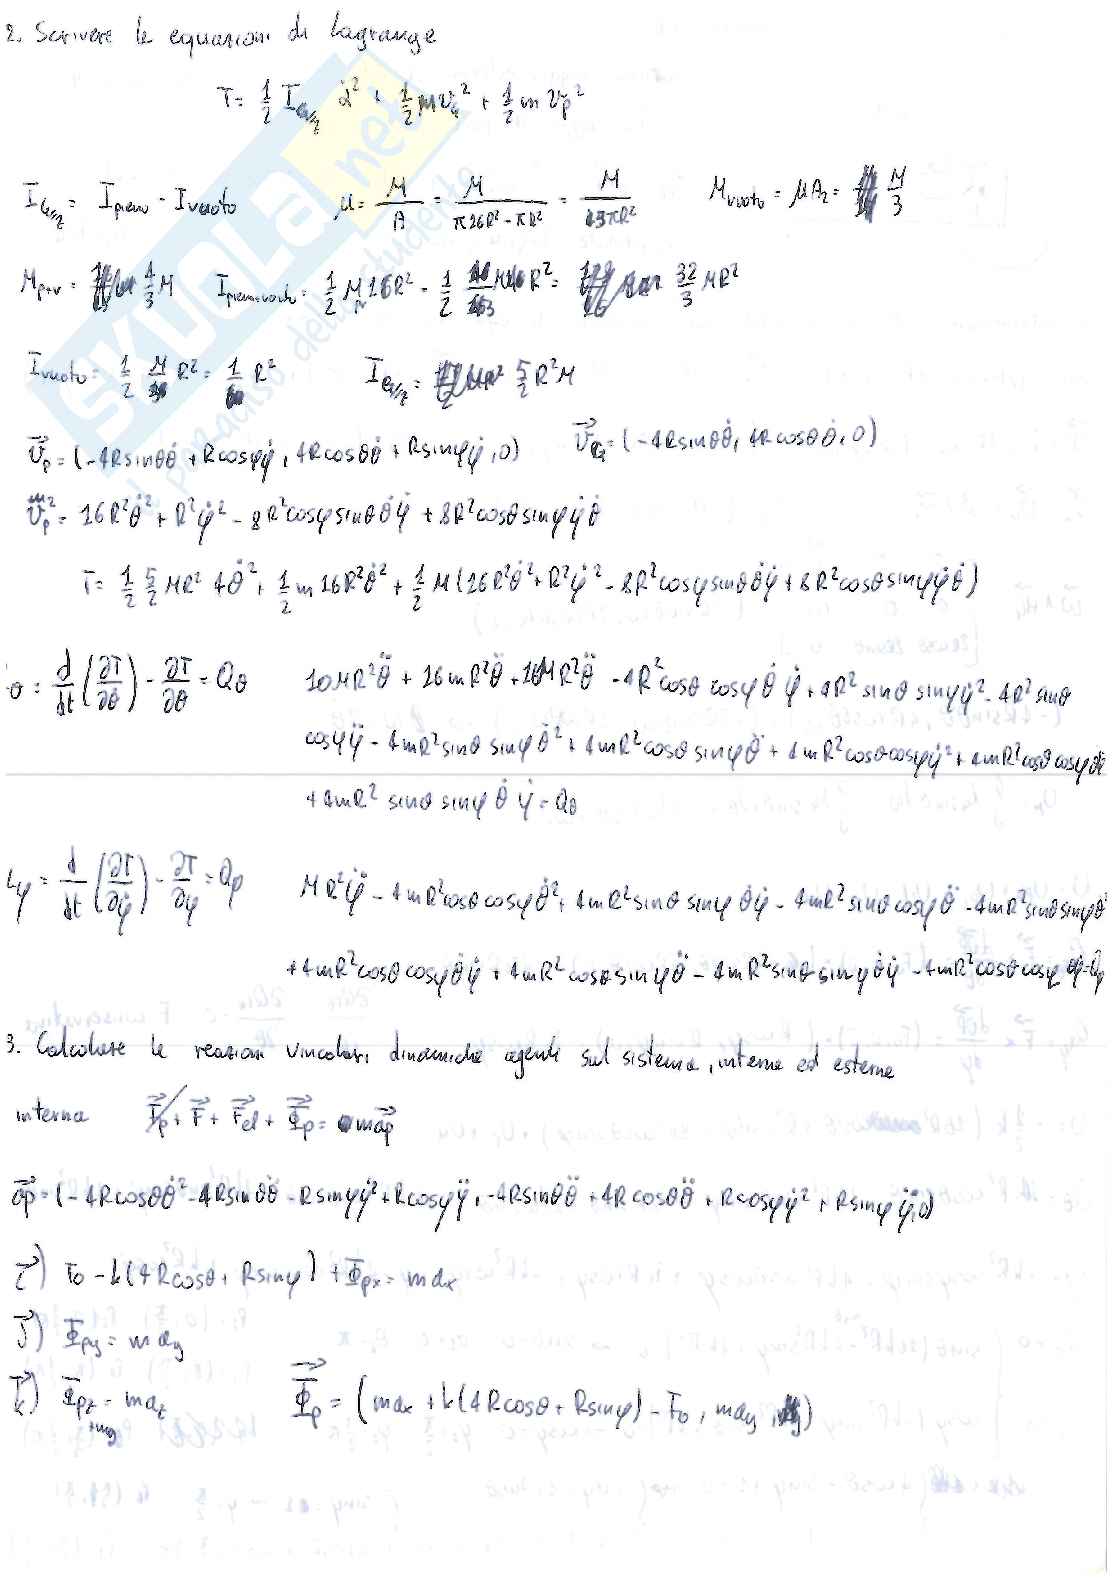 2. Scrivere le equazioni di Lagrange
T = 1/2 I_{G/z} α̇² + 1/2 M v_G² + 1/2 m v_p²
I_{G/z} = I_pieno - I_vuoto μ = M/A = M/(π16R² - πR²) = M/(πR²) M_vuoto = μA₂ = M/3
M_{p+v} = 4/3 M I_{pieno+vuoto} = 1/2 M_p 16R² - 1/2 R² = 32/3 MR²
I_vuoto = 1/2 M R² = 1/ R² I_{G/z} = 5/2 R²M
v⃗_p = (-4R sinθ θ̇ + R cosφ φ̇, 4R cosθ θ̇ + R sinφ φ̇, 0) v⃗_G = (-4R sinθ θ̇, 4R cosθ θ̇, 0)
v_p² = 16R²θ̇² + R²φ̇² - 8R² cosφ sinθ θ̇ φ̇ + 8R² cosθ sinφ φ̇ θ̇
T = 1/2 5/2 MR² 4θ̇² + 1/2 m 16R²θ̇² + 1/2 M (16R²θ̇² + R²φ̇² - 8R² cosφ sinθ θ̇ φ̇ + 8R² cosθ sinφ φ̇ θ̇)
θ : d/dt (∂T/∂θ̇) - ∂T/∂θ = Q_θ 10MR²θ̈ + 16mR²θ̈ + 16MR²θ̈ - 4R² cosθ cosφ θ̇ φ̇ + 4R² sinθ sinφ φ̇² - 4R² sinθ
cosφ φ̈ - 4mR² sinθ sinφ θ̇² + 4mR² cosθ sinφ θ̈ + 4mR² cosθ cosφ φ̇² + 4mR² cosθ cosφ
+ 4mR² sinθ sinφ θ̇ φ̇ = Q_θ
L_φ = d/dt (∂T/∂φ̇) - ∂T/∂φ = Q_φ MR²φ̈ - 4mR² cosθ cosφ θ̇² + 4mR² sinθ sinφ θ̇ φ̇ - 4mR² sinθ cosφ θ̈ - 4mR² sinθ sinφ θ̇²
+ 4mR² cosθ cosφ θ̇ φ̇ + 4mR² cosθ sinφ θ̈ - 4mR² sinθ sinφ θ̇ φ̇ - 4mR² cosθ cosφ θ̇φ̇ = Q_φ
3. Calcolare le reazioni vincolari dinamiche agenti sul sistema, interne ed esterne
interna F⃗_p + F⃗ + F⃗_el + Φ⃗_p = m a⃗_p
a⃗_p = (-4R cosθ θ̇² - 4R sinθ θ̈ - R sinφ φ̇² + R cosφ φ̈, -4R sinθ θ̈ + 4R cosθ θ̈ + R cosφ φ̇² + R sinφ φ̈, 0)
i⃗) F₀ - k(4R cosθ + R sinφ) + Φ_px = m a_x
j⃗) Φ_py = m a_y
k⃗) Φ_pz = m a_z Φ⃗_p = (m a_x + k(4R cosθ + R sinφ) - F₀, m a_y, mg)
+mg
SKUOLA.net
il paradiso dello studente